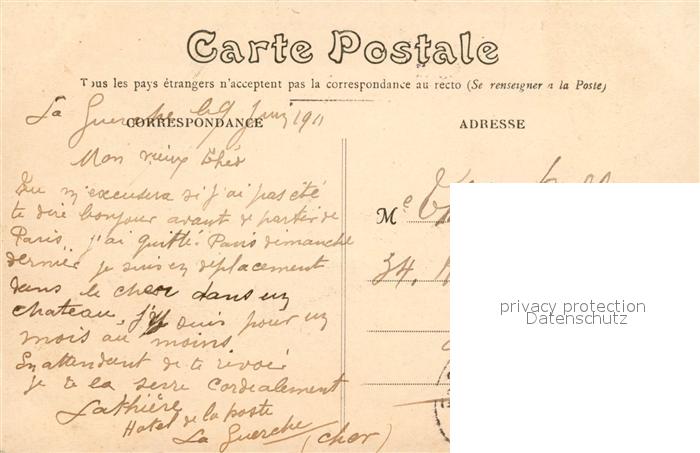 Carte Postale
Tous les pays étrangers n'acceptent pas la correspondance au recto (Se renseigner a la Poste)
La Guerche le 9 Juin 1911
CORRESPONDANCE
Mon vieux Théo
Tu m'excusera si j'ai pas été
te dire bonjour avant de partir de
Paris, j'ai quitté Paris dimanche
dernier je suis en déplacement
dans le cher dans un
chateau, j'y suis pour un
mois au moins
En attendant de te revoir
je te la serre cordialement
Lathière
Hotel de la poste
La Guerche (cher)
ADRESSE
M
34,
privacy protection
Datenschutz